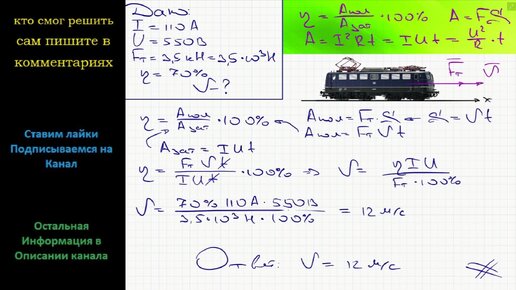 кто смог решить
сам пишите в
комментариях
Ставим лайки
Подписываемся на
Канал
Остальная
Информация в
Описании канала
Дано:
I = 110 А
U = 550 В
Fт = 3,5 кН = 3,5·10³ Н
η = 70%
υ - ?
η = Aпол / Aзат · 100%   A = FS
A = I²Rt = IUt = U²/R · t
Fт υ
x
η = Aпол / Aзат · 100%   Aпол = Fт · S   S = υt
Aпол = Fт υt
Aзат = IUt
η = Fт υt / IUt · 100% ⇒ υ = ηIU / Fт · 100%
υ = 70% 110А · 550В / 3,5·10³ Н · 100% = 12 м/с
Ответ: υ = 12 м/с